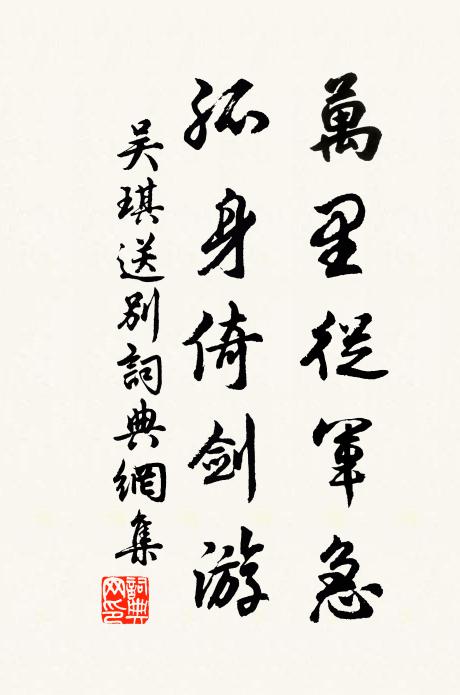 萬里從軍急
孤身倚劍游
吴琪送别詞典網集
詞典網印